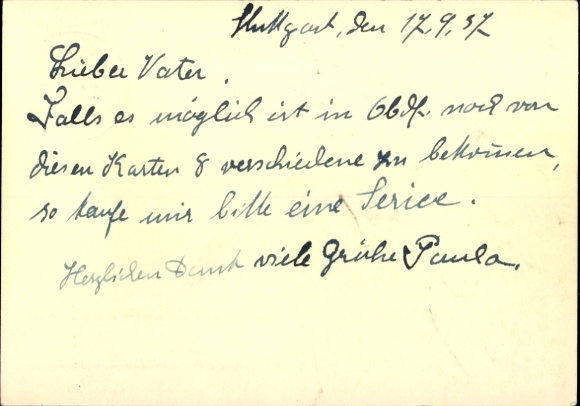 Stuttgart, den 17.9.37
Lieber Vater,
Falls es möglich ist in Obdf. noch von
diesen Karten 8 verschiedene zu bekommen,
so kaufe mir bitte eine Serie.
Herzlichen Dank viele Grüße Paula.